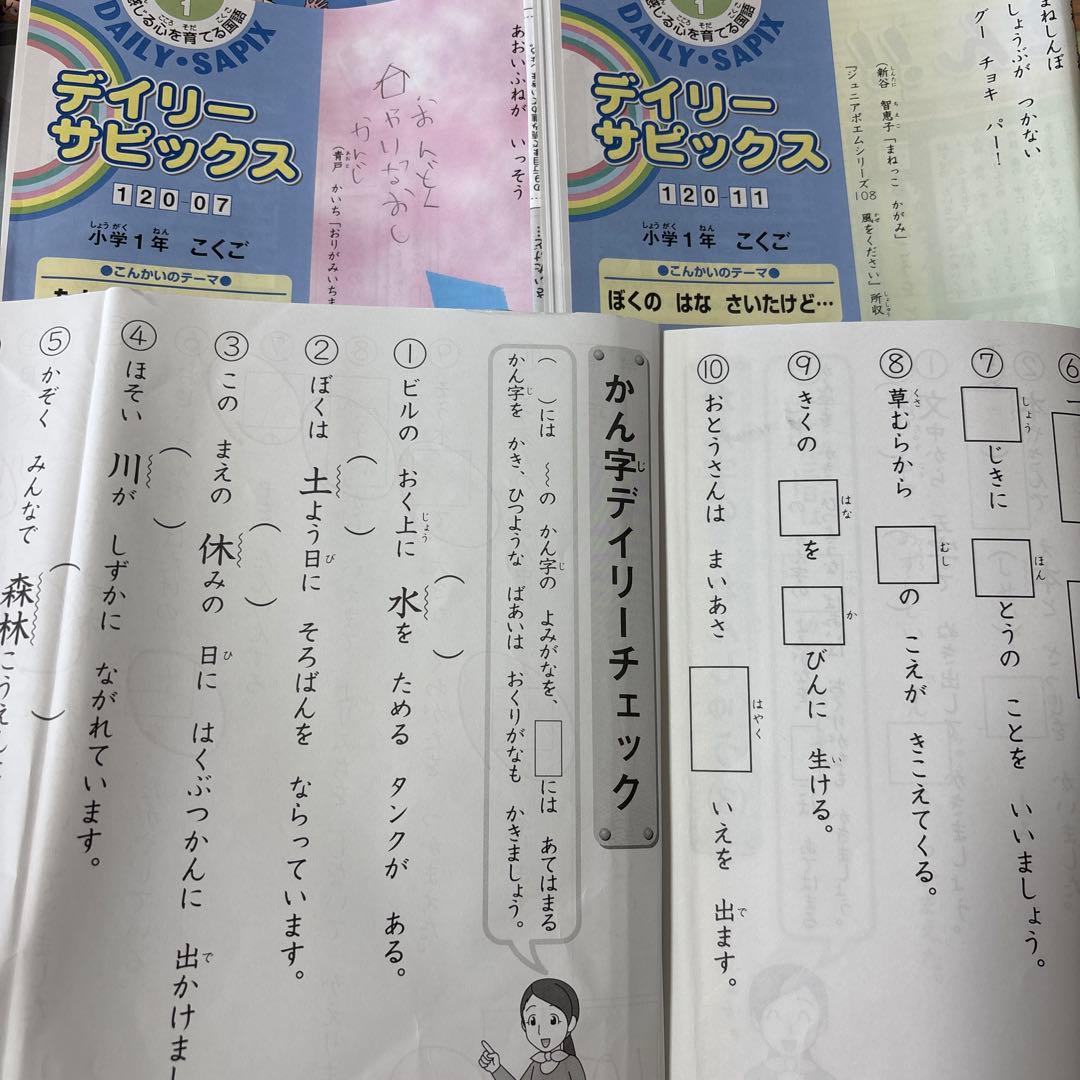 1
感じる心を育てる国語
DAILY・SAPIX
デイリー
サピックス
120-07
小学1年 こくご
●こんかいのテーマ●
あおいふねが いっそう
おんどく
かんじ
(青戸 かいち「おりがみいちま
1
じる心を育てる国語
DAILY・SAPIX
デイリー
サピックス
120-11
小学1年 こくご
●こんかいのテーマ●
ぼくの はな さいたけど…
まねしんぼ
しょうぶが つかない
グー チョキ パー!
(新谷 智恵子「まねっこ かがみ」
『ジュニアポエムシリーズ108 風をください』所収
かん字デイリーチェック
( )には 〜の かん字の よみがなを、□には あてはまる
かん字を かき、ひつような ばあいは おくりがなも かきましょう。
① ビルの おく上に 水を ためる タンクが ある。
② ぼくは 土よう日に そろばんを ならっています。
③ この まえの 休みの 日に はくぶつかんに 出かけまし
④ ほそい 川が しずかに ながれています。
⑤ かぞく みんなで 森林こうえん
⑥
⑦ □しょうじきに □ほんとうの ことを いいましょう。
⑧ 草むらから □むしの こえが きこえてくる。
⑨ きくの □はなを □かびんに 生ける。
⑩ おとうさんは まいあさ □はやく いえを 出ます。